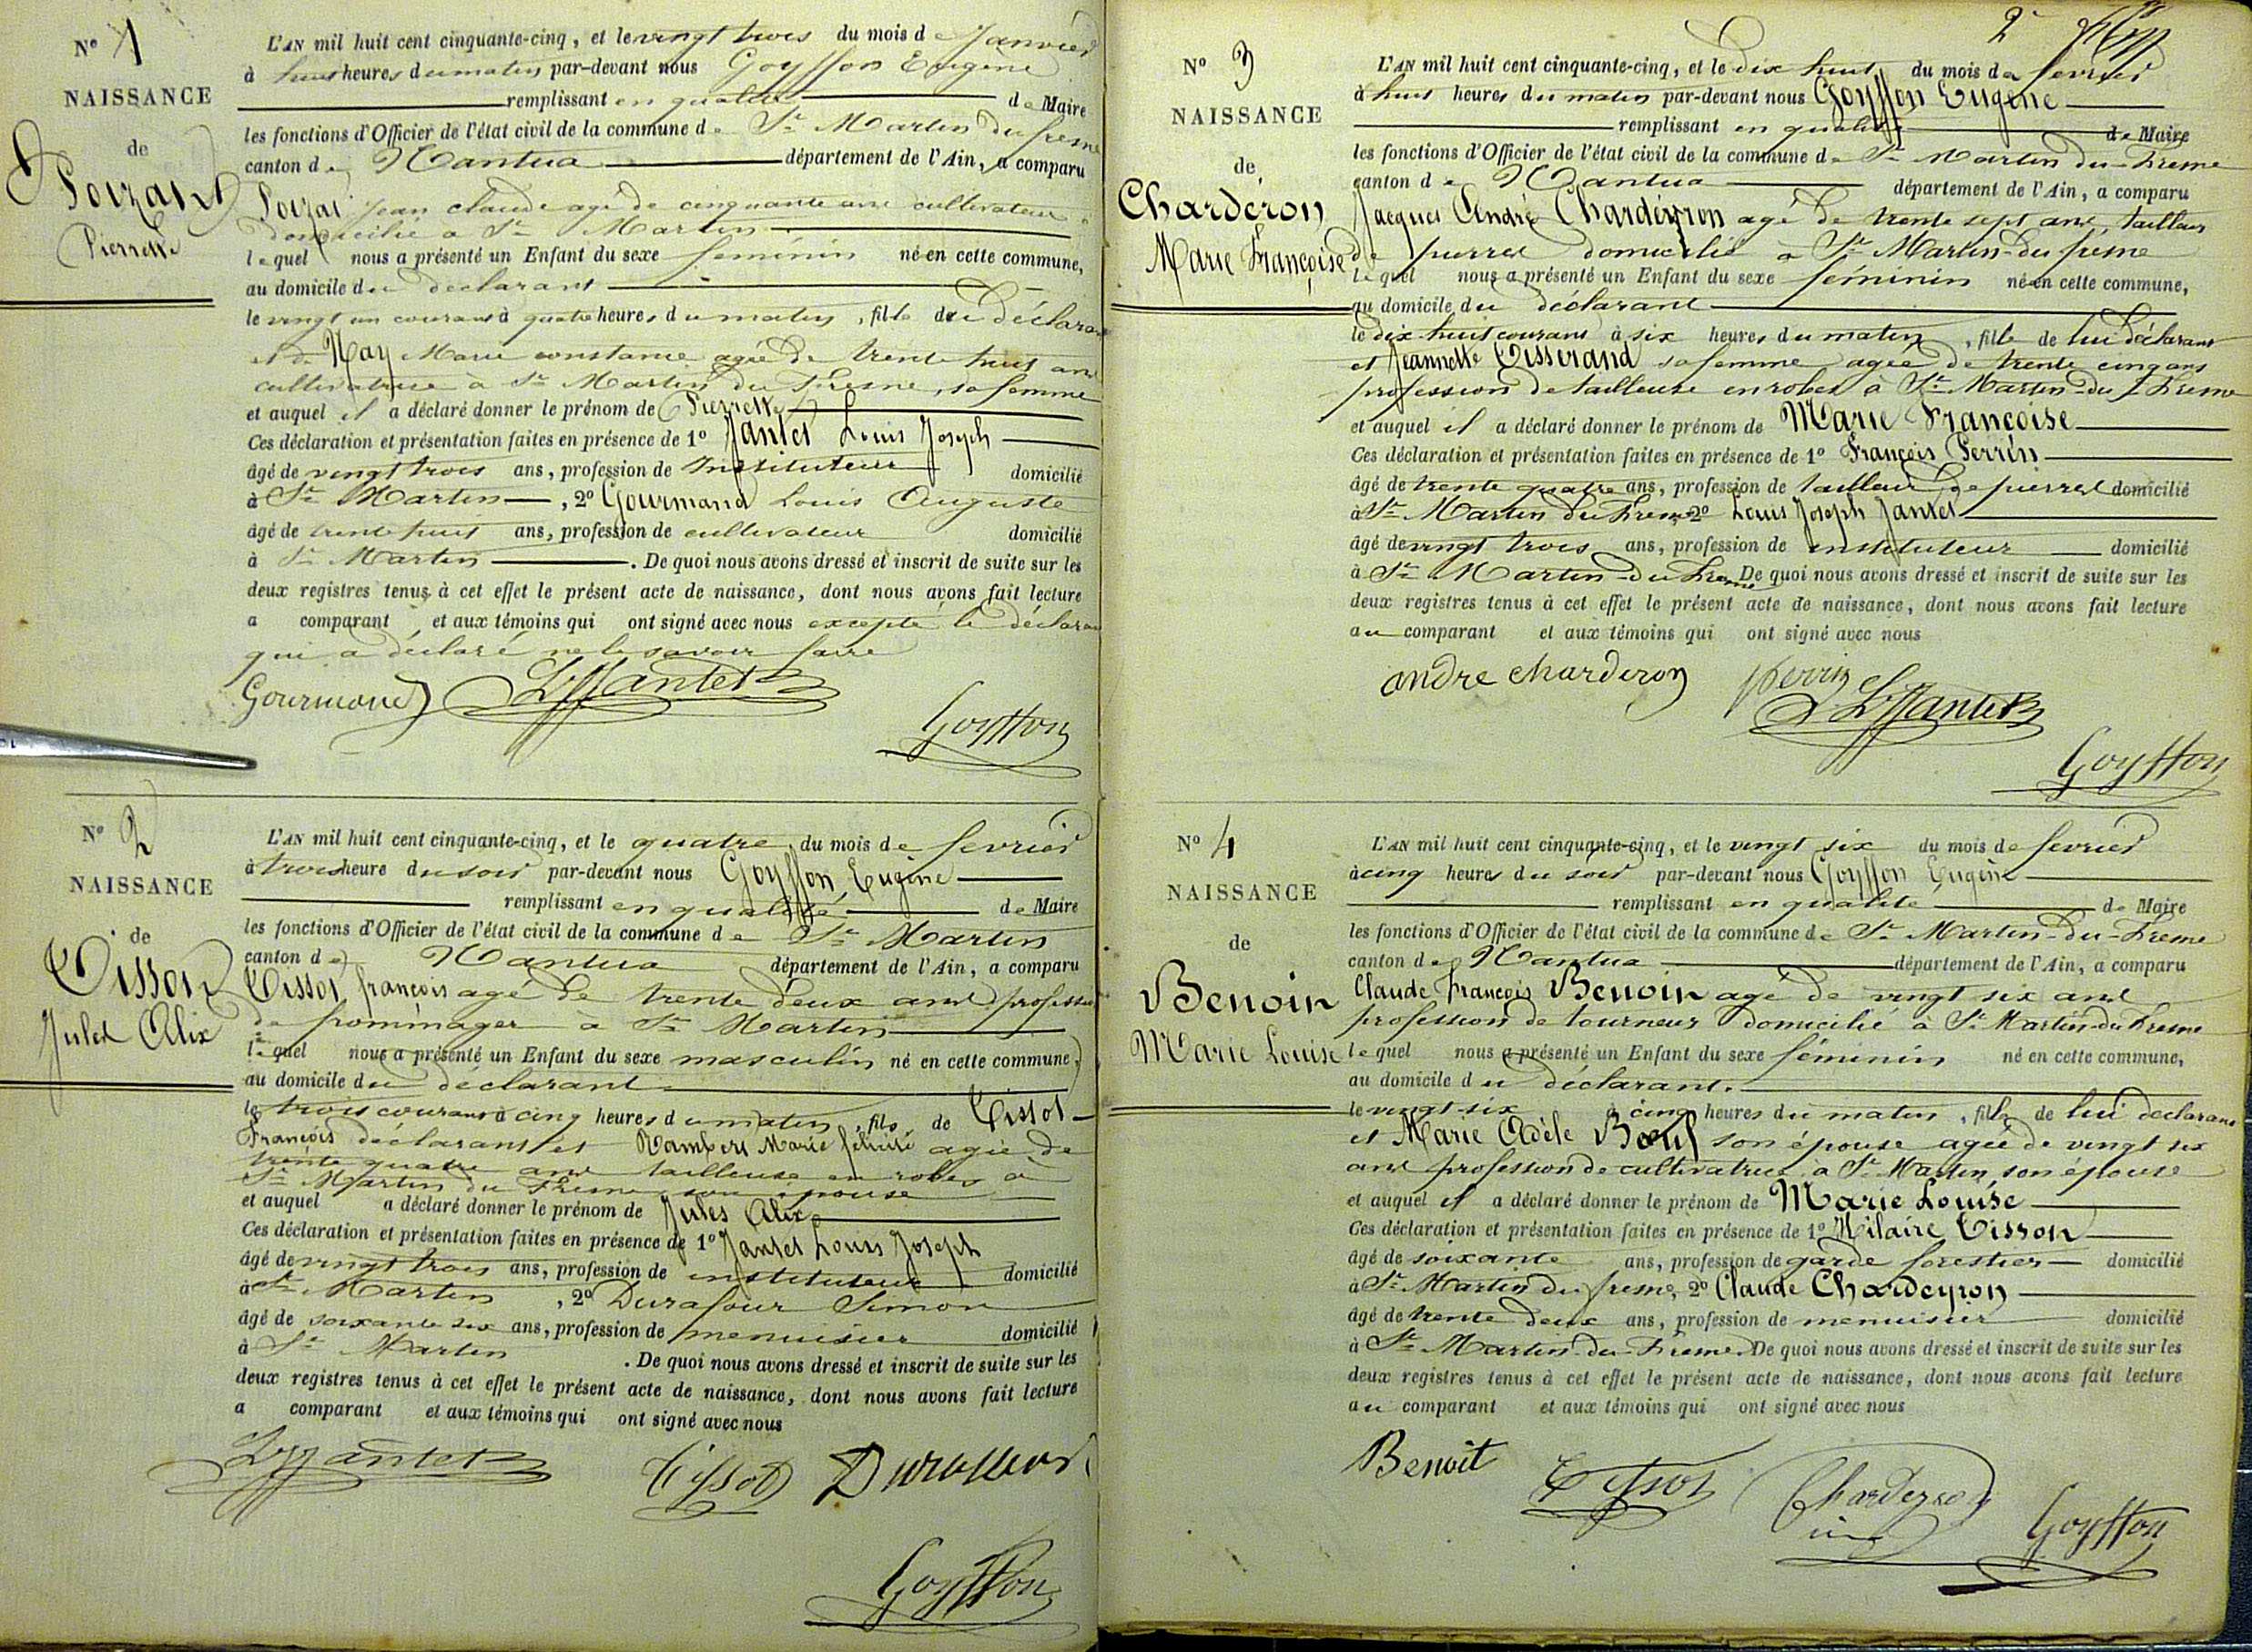 N° 1
NAISSANCE
de
Poizat
Pierrette
L'AN mil huit cent cinquante-cinq, et le vingt trois du mois de Janvier
à huit heures du matin par-devant nous Goyffon Eugène
remplissant en qualité de Maire
les fonctions d'Officier de l'état civil de la commune de St Martin du fresne
canton de Nantua département de l'Ain, a comparu
Poizat jean claude agé de cinquante ans cultivateur
domicilié à St Martin
lequel nous a présenté un Enfant du sexe féminin né en cette commune,
au domicile du déclarant
le vingt un courant à quatre heures du matin, fille du déclarant
et de Nay Marie constance agée de trente huit ans
cultivatrice à St Martin du Fresne, sa femme
et auquel il a déclaré donner le prénom de Pierrette
Ces déclaration et présentation faites en présence de 1° Jantet Louis Joseph
âgé de vingt trois ans, profession de Instituteur domicilié
à St Martin, 2° Gourmand Louis Auguste
âgé de trente huit ans, profession de cultivateur domicilié
à St Martin. De quoi nous avons dressé et inscrit de suite sur les
deux registres tenus à cet effet le présent acte de naissance, dont nous avons fait lecture
a comparant et aux témoins qui ont signé avec nous excepté le déclarant
qui a déclaré ne le savoir faire
Gourmand LJJantet
Goyffon
N° 2
NAISSANCE
de
Tissot
Jules Alix
L'AN mil huit cent cinquante-cinq, et le quatre du mois de fevrier
à trois heure du soir par-devant nous Goyffon Eugène
remplissant en qualité de Maire
les fonctions d'Officier de l'état civil de la commune de St Martin
canton de Nantua département de l'Ain, a comparu
Tissot françois agé de trente deux ans profession
de frommager à St Martin
lequel nous a présenté un Enfant du sexe masculin né en cette commune,
au domicile du déclarant
le trois courant à cinq heures du matin, fils de Tissot
François déclarant et Rambert Marie félicité agée de
trente quatre ans tailleuse en robes à
St Martin du Fresne son épouse
et auquel a déclaré donner le prénom de Jules Alix
Ces déclaration et présentation faites en présence de 1° Jantet Louis Joseph
âgé de vingt trois ans, profession de instituteur domicilié
à St Martin, 2° Durafour Simon
âgé de soixante six ans, profession de menuisier domicilié
à St Martin. De quoi nous avons dressé et inscrit de suite sur les
deux registres tenus à cet effet le présent acte de naissance, dont nous avons fait lecture
a comparant et aux témoins qui ont signé avec nous
LJJantet Tissot
Goyffon
2
N° 3
NAISSANCE
de
Charderon
Marie Françoise
L'AN mil huit cent cinquante-cinq, et le dix huit du mois de fevrier
à huit heures du matin par-devant nous Goyffon Eugène
remplissant en qualité de Maire
les fonctions d'Officier de l'état civil de la commune de St Martin-du-Fresne
canton de Nantua département de l'Ain, a comparu
Jacques André Chardeyron agé de trente sept ans, tailleur
de pierres domicilié à St Martin-du fresne
lequel nous a présenté un Enfant du sexe féminin né en cette commune,
au domicile du déclarant
le dix huit courant à six heures du matin, fille de lui déclarant
et Jeannette Tisserand sa femme agée de trente cinq ans
profession de tailleuse en robes à St Martin-du-Fresne
et auquel il a déclaré donner le prénom de Marie Françoise
Ces déclaration et présentation faites en présence de 1° François Perrin
âgé de trente quatre ans, profession de tailleur de pierres domicilié
à St Martin du Fresne 2° Louis Joseph Jantet
âgé de vingt trois ans, profession de instituteur domicilié
à St Martin-du Fresne De quoi nous avons dressé et inscrit de suite sur les
deux registres tenus à cet effet le présent acte de naissance, dont nous avons fait lecture
au comparant et aux témoins qui ont signé avec nous
andre charderon Perrin
LJJantet
Goyffon
N° 4
NAISSANCE
de
Benoit
Marie Louise
L'AN mil huit cent cinquante-cinq, et le vingt six du mois de fevrier
à cinq heures du soir par-devant nous Goyffon Eugène
remplissant en qualité de Maire
les fonctions d'Officier de l'état civil de la commune de St Martin-du-Fresne
canton de Nantua département de l'Ain, a comparu
Claude François Benoit agé de vingt six ans
profession de tourneur domicilié à St Martin-du Fresne
lequel nous a présenté un Enfant du sexe féminin né en cette commune,
au domicile du déclarant.
le vingt-six à cinq heures du matin, fille de lui déclarant
et Marie Adèle Bœuf son épouse agée de vingt six
ans profession de cultivatrice à St Martin, son épouse
et auquel il a déclaré donner le prénom de Marie Louise
Ces déclaration et présentation faites en présence de 1° Hilaire Tissot
âgé de soixante ans, profession de garde forestier domicilié
à St Martin du fresne, 2° Claude Chardeyron
âgé de trente deux ans, profession de menuisier domicilié
à St Martin-du-Fresne De quoi nous avons dressé et inscrit de suite sur les
deux registres tenus à cet effet le présent acte de naissance, dont nous avons fait lecture
au comparant et aux témoins qui ont signé avec nous
Benoit Tissot Chardeyron
Goyffon